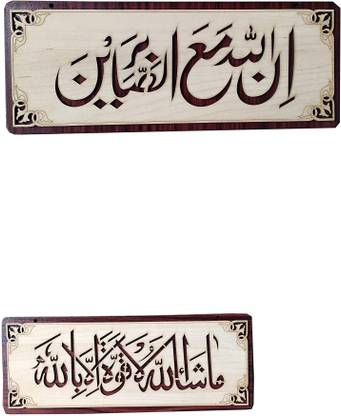 ان الله مع الصابرين
ما شاء الله لا قوة الا بالله